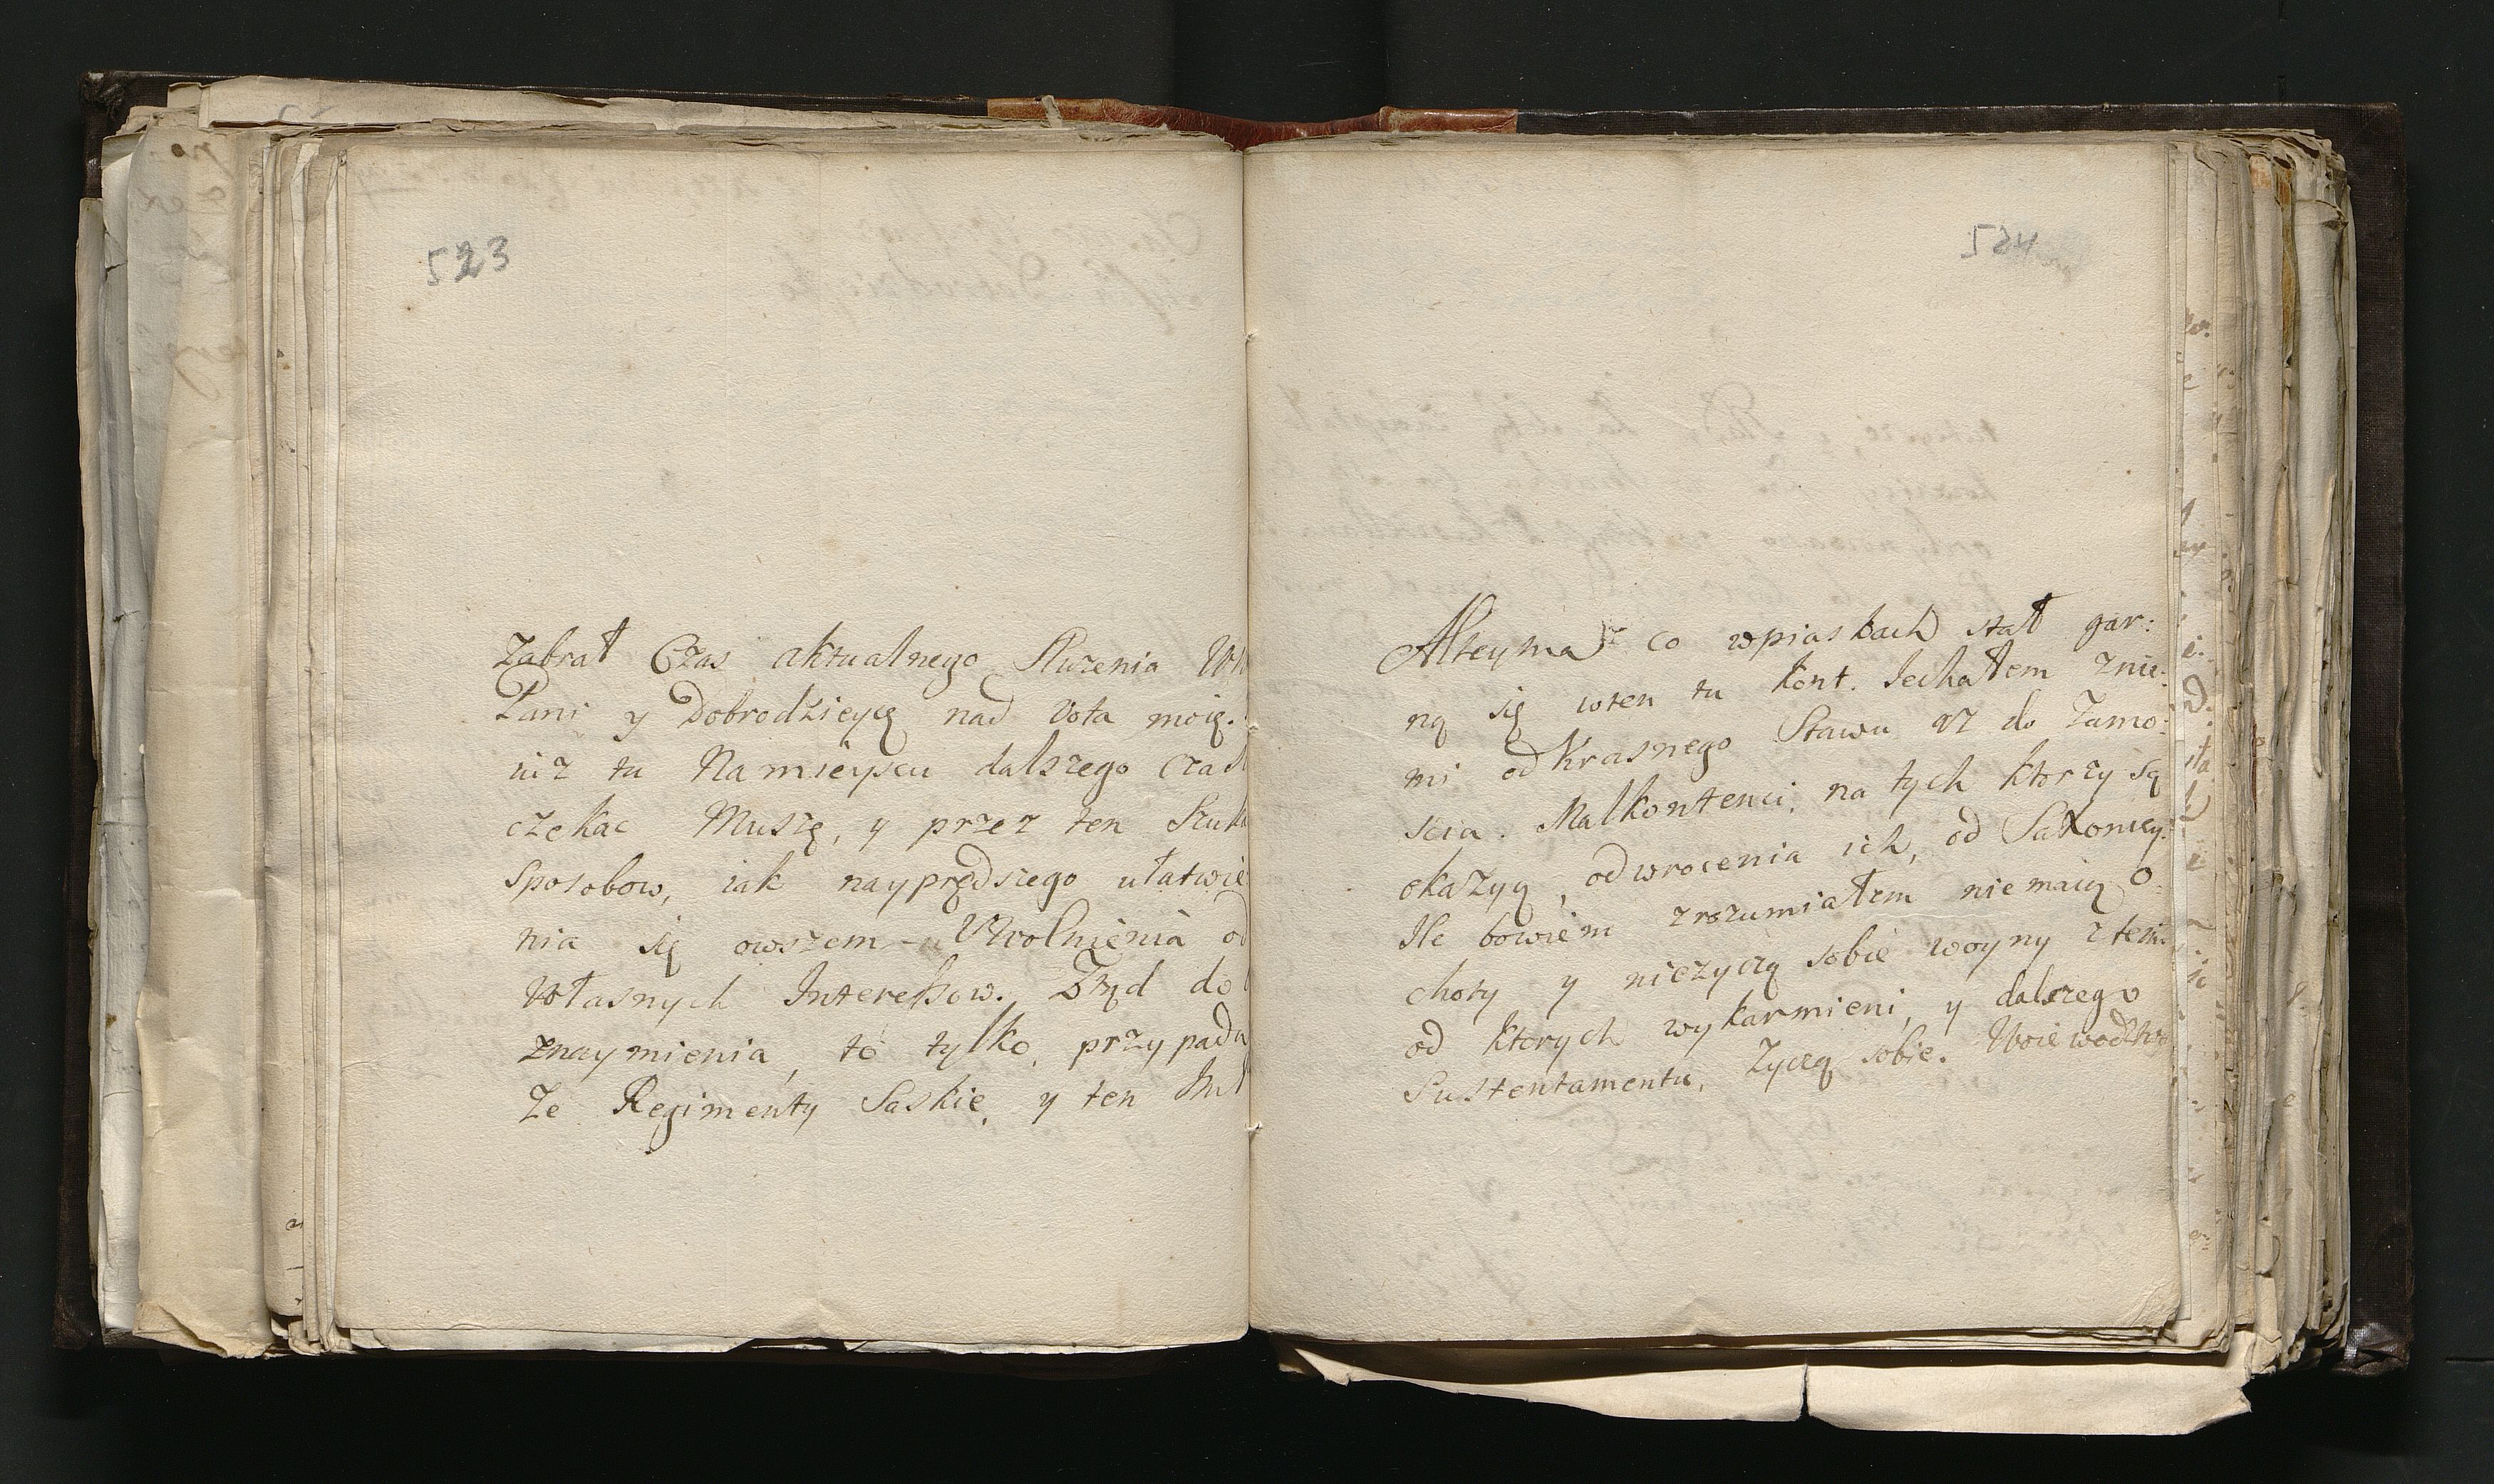 523
Zabrał Czas aktualnego Służenia
Pani y Dobrodzieyę nad Vota moię.
iuz tu Na mieyscu dalszego
czekac Muszę, y przez ten
Sposobow, iak nayprędszego ułatwie
nia się owszem Vwolnienia od
Własnych Interessow. Ztąd do
znaymienia, to tylko, przypada
Ze Regimenty Saskie, y ten
524
co w piaskach stał gar:
ną się wten tu kont. Jechałem znie:
mi od Krasnego Stawu az do Zamo:
scia. Malkontenci, na tych ktorzy są
okazyą, odwrocenia ich, od Saxoniey:
Ile bowiem zrozumiałem niemaią o:
choty y nieżyczą sobie woyny z tem:
od ktorych wykarmieni, y dalszego
Sustentamentu, życzą sobie.